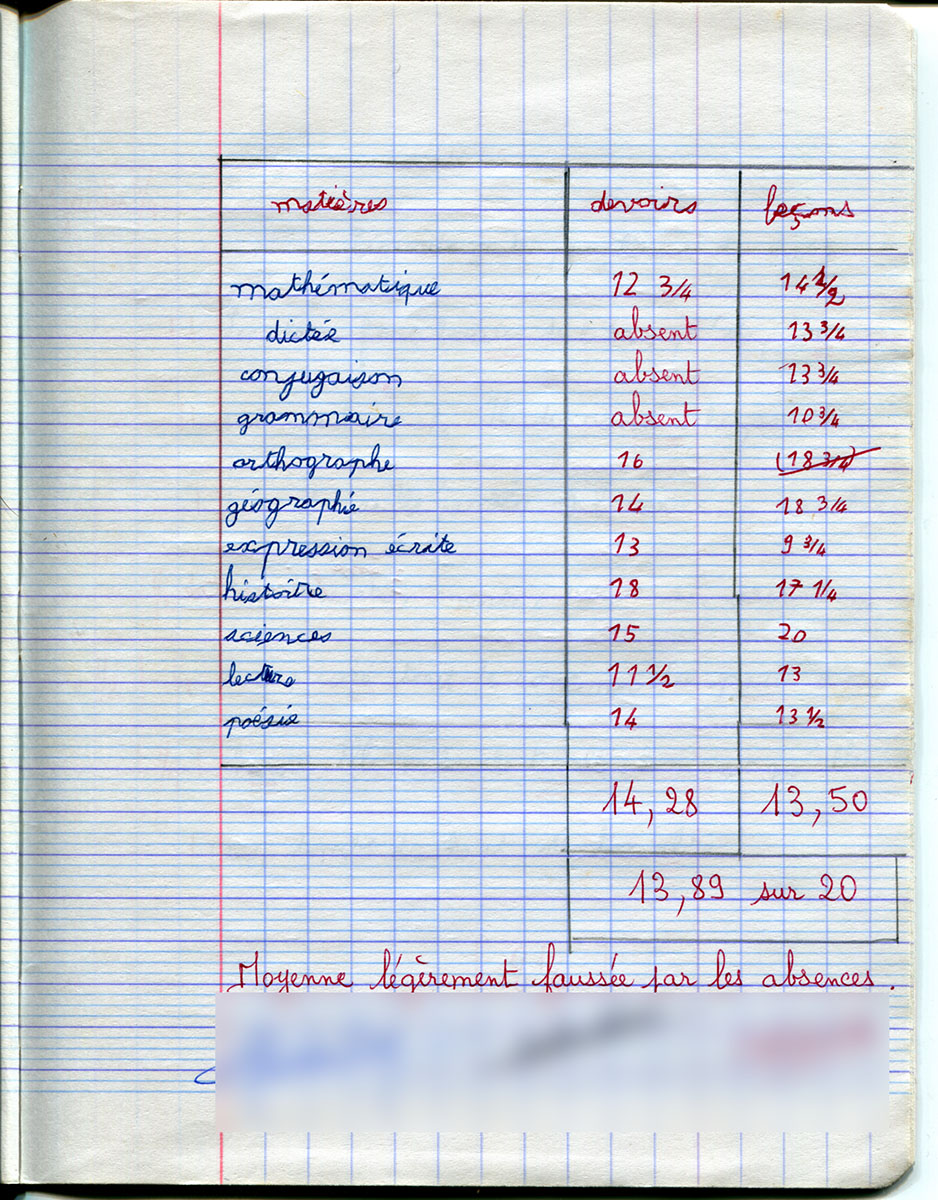 matières devoirs leçons
mathématique 12 3/4 14 1/2
dictée absent 13 3/4
conjugaison absent 13 3/4
grammaire absent 10 3/4
orthographe 16 (18 3/4)
géographie 14 18 3/4
expression écrite 13 9 3/4
histoire 18 17 1/4
sciences 15 20
lecture 11 1/2 13
poésie 14 13 1/2
14,28 13,50
13,89 sur 20
Moyenne légèrement faussée par les absences.